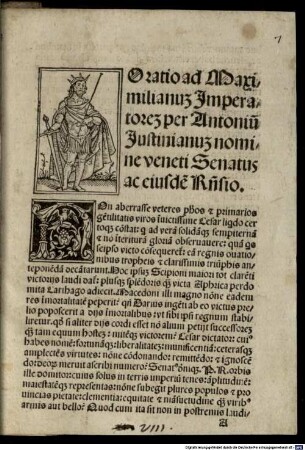 Oratio ad Maxi
milianuʒ Impera-
toreʒ per Antoniũ
Iustinianuʒ nomi-
ne veneti Senatus
ac eiusdē Rñsio.
NOn aberrasse veteres pħos & primarios
gẽtilitatis viros iuictissime Cesar liqdo cer
toqʒ cõstat: q ad verã solidãqʒ sempiternã
& nõ iteriturã gloriã obseruauere: quã
seipso victo cõsequeret̃: eã regnis ouatio
nibus tropheis & clarissimis triũphis an
teponẽdã docãtarunt. Hoc ipsuʒ Scipioni maiori tot clareti
victorijs laudi dat̃: plusqʒ spiẽdoris qʒ victa Aphrica perdo
mita Carthago adiecit. Macedoni illi magno nõne eadem
res imortalitatẽ peperit: qʒ Darius ingẽti ab eo victus pre
lio poposcerit a dijs imortalibus vt sibi ipsi regnum stabi
liret̃: qʒ si aliter dijs cordi esset nõ alium petijt successorem
qʒ tam equum hostẽ: mitẽqʒ victorem: Cesar dictator cui
habes nomẽ: fortunãqʒ: liberalitatẽ: munificẽtiã: ceterasqʒ
amplectẽs virtutes: nõne cõdonando: remittẽdo: & ignoscẽ
do: deorũ meruit ascribi numero: Senatꝰoniqʒ P.R. orbis
ille domitor: cuius solus in terris imperiũ tenens: aplitudinẽ:
maiestatẽqʒ representas: nõne subegit plures populos & pro
uincias pietate: clementia: equitate & mãsuetudine qʒ viribꝰ
armis aut bello? Quod cum ita sit non in postremis laudi-
VIII.